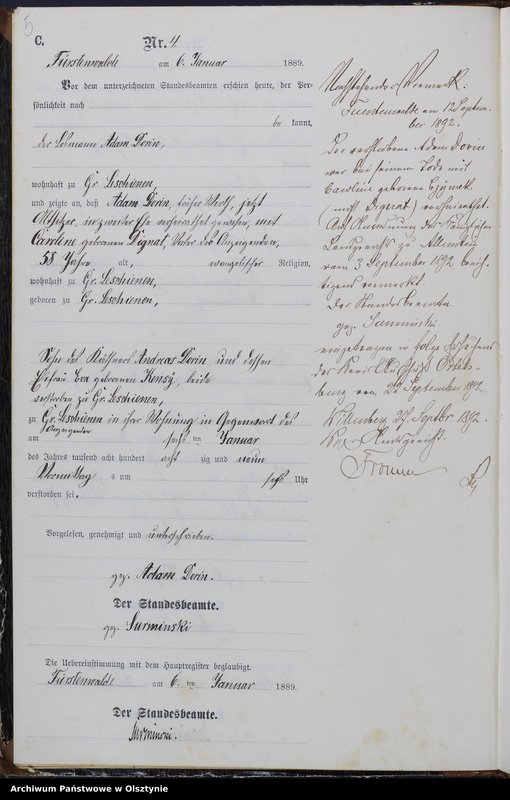 5
C.
Nr. 4
Fürstenwalde am 6. Januar 1889.
Vor dem unterzeichneten Standesbeamten erschien heute, der Per-
sönlichkeit nach
be kannt,
der Losmann Adam Dorin,
wohnhaft zu Gr. Leschienen,
und zeigte an, daß Adam Dorin, früher Wirth, jetzt
Altsitzer, in zweiter Ehe verheirathet gewesen, mit
Caroline geborenen Dignat, Vater des Anzeigenden,
58 Jahre alt, evangelischer Religion,
wohnhaft zu Gr. Leschienen,
geboren zu Gr. Leschienen,
Sohn des Käthners Andreas Dorin und dessen
Ehefrau Eva geborenen Kensy, beide
verstorben zu Gr. Leschienen,
zu Gr. Leschienen in ihrer Wohnung in Gegenwart des
Anzeigenden
am sechs ten Januar
des Jahres tausend acht hundert acht zig und neun
Vormittag s um sechs Uhr
verstorben sei.
Vorgelesen, genehmigt und unterschrieben.
gez. Adam Dorin.
Der Standesbeamte.
gez. Surminski
Die Uebereinstimmung mit dem Hauptregister beglaubigt.
Fürstenwalde am 6. ten Januar 1889.
Der Standesbeamte.
Surminski.
Nachstehender Vermerk:
Fuerstenwalde am 12 Septem-
ber 1892.
Der verstorbene Adam Dorin
war bei seinem Tode mit
Caroline geborene
(nicht Dignat) verheirathet.
Auf Anordnung des Königlichen
Landgerichts zu Allenstein
vom 3 September 1892 berich-
tigend vermerkt.
Der Standesbeamte
gez. Surminski
eingetragen in Folge
des Kreis Ausschuß Ortels-
burg vom 22 September 1892
Willenberg 27. Septbr. 1892.
Kgl. Amtsgericht.
Archiwum Państwowe w Olsztynie